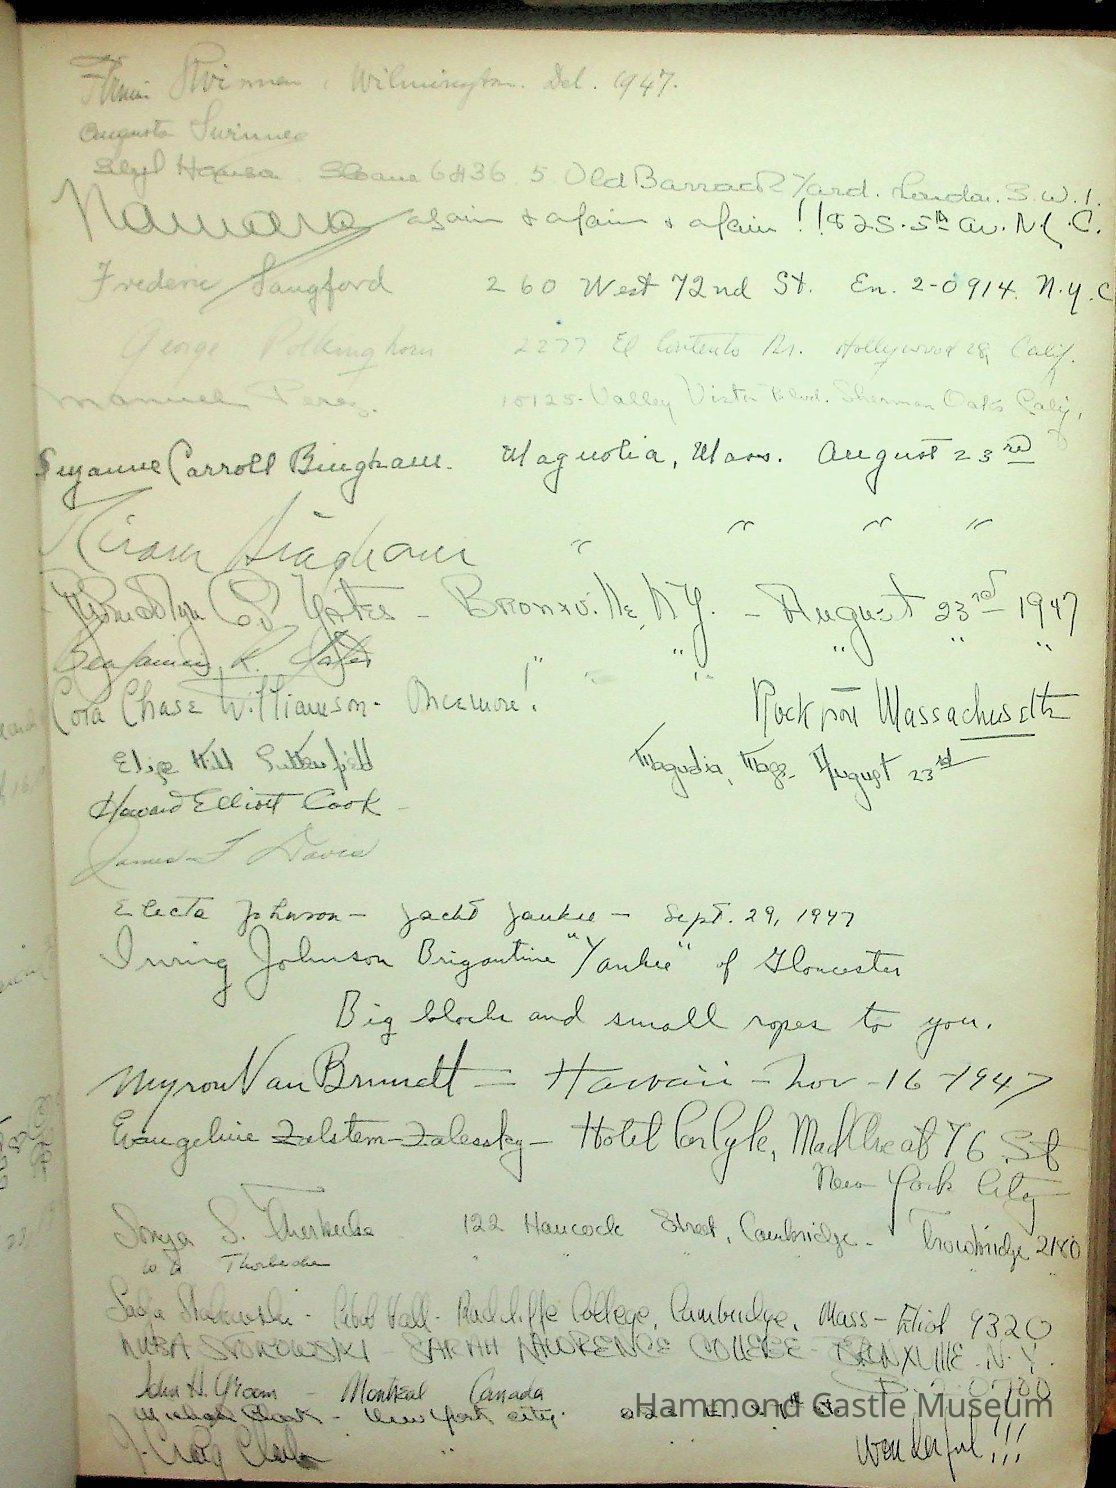 Wilmington. Del. 1947.
Augusta
Sloane 6436 5 Old Barrack Yard. London. S.W.1.
again & again & again !! 825. 5th Av. N.Y.C.
Frederic Langford 260 West 72nd St. En. 2-0914. N.Y.C
George Polkinghorn 2277 El Contento Dr. Hollywood 28, Calif.
Manuel Perez. 15125- Valley Vista Blvd. Sherman Oaks Calif.
Suzanne Carroll Bingham. Magnolia, Mass. August 23rd
Hiram Bingham " " " "
Yates - Bronxville, N.Y. - August 23rd 1947
Benjamin R. Yates " " " " "
Cora Chase Williamson - Once more! Rockport Massachusetts
Elise Hill Magnolia, Mass. August 23rd
Howard Elliott Cook -
James F Davis
Electa Johnson - Yacht Yankee - Sept. 29, 1947
Irving Johnson Brigantine "Yankee" of Gloucester
Big blocks and small ropes to you.
Myron Van Brundt = Hawaii - Nov - 16 - 1947
Evangeline Zalstem-Zalessky - Hotel Carlyle, Mad Ave at 76 St
New York City
Sonya S. 122 Hancock Street, Cambridge - Trowbridge 2180
Sadja Stokowski - Cabot Hall - Radcliffe College, Cambridge, Mass - Eliot 9320
LUBA STOKOWSKI - SARAH LAWRENCE COLLEGE - BRONXVILLE - N.Y.
John H. Groom - Montreal Canada
Clark - New York City
J. Craig Clark " Wonderful!!!
Hammond Castle Museum